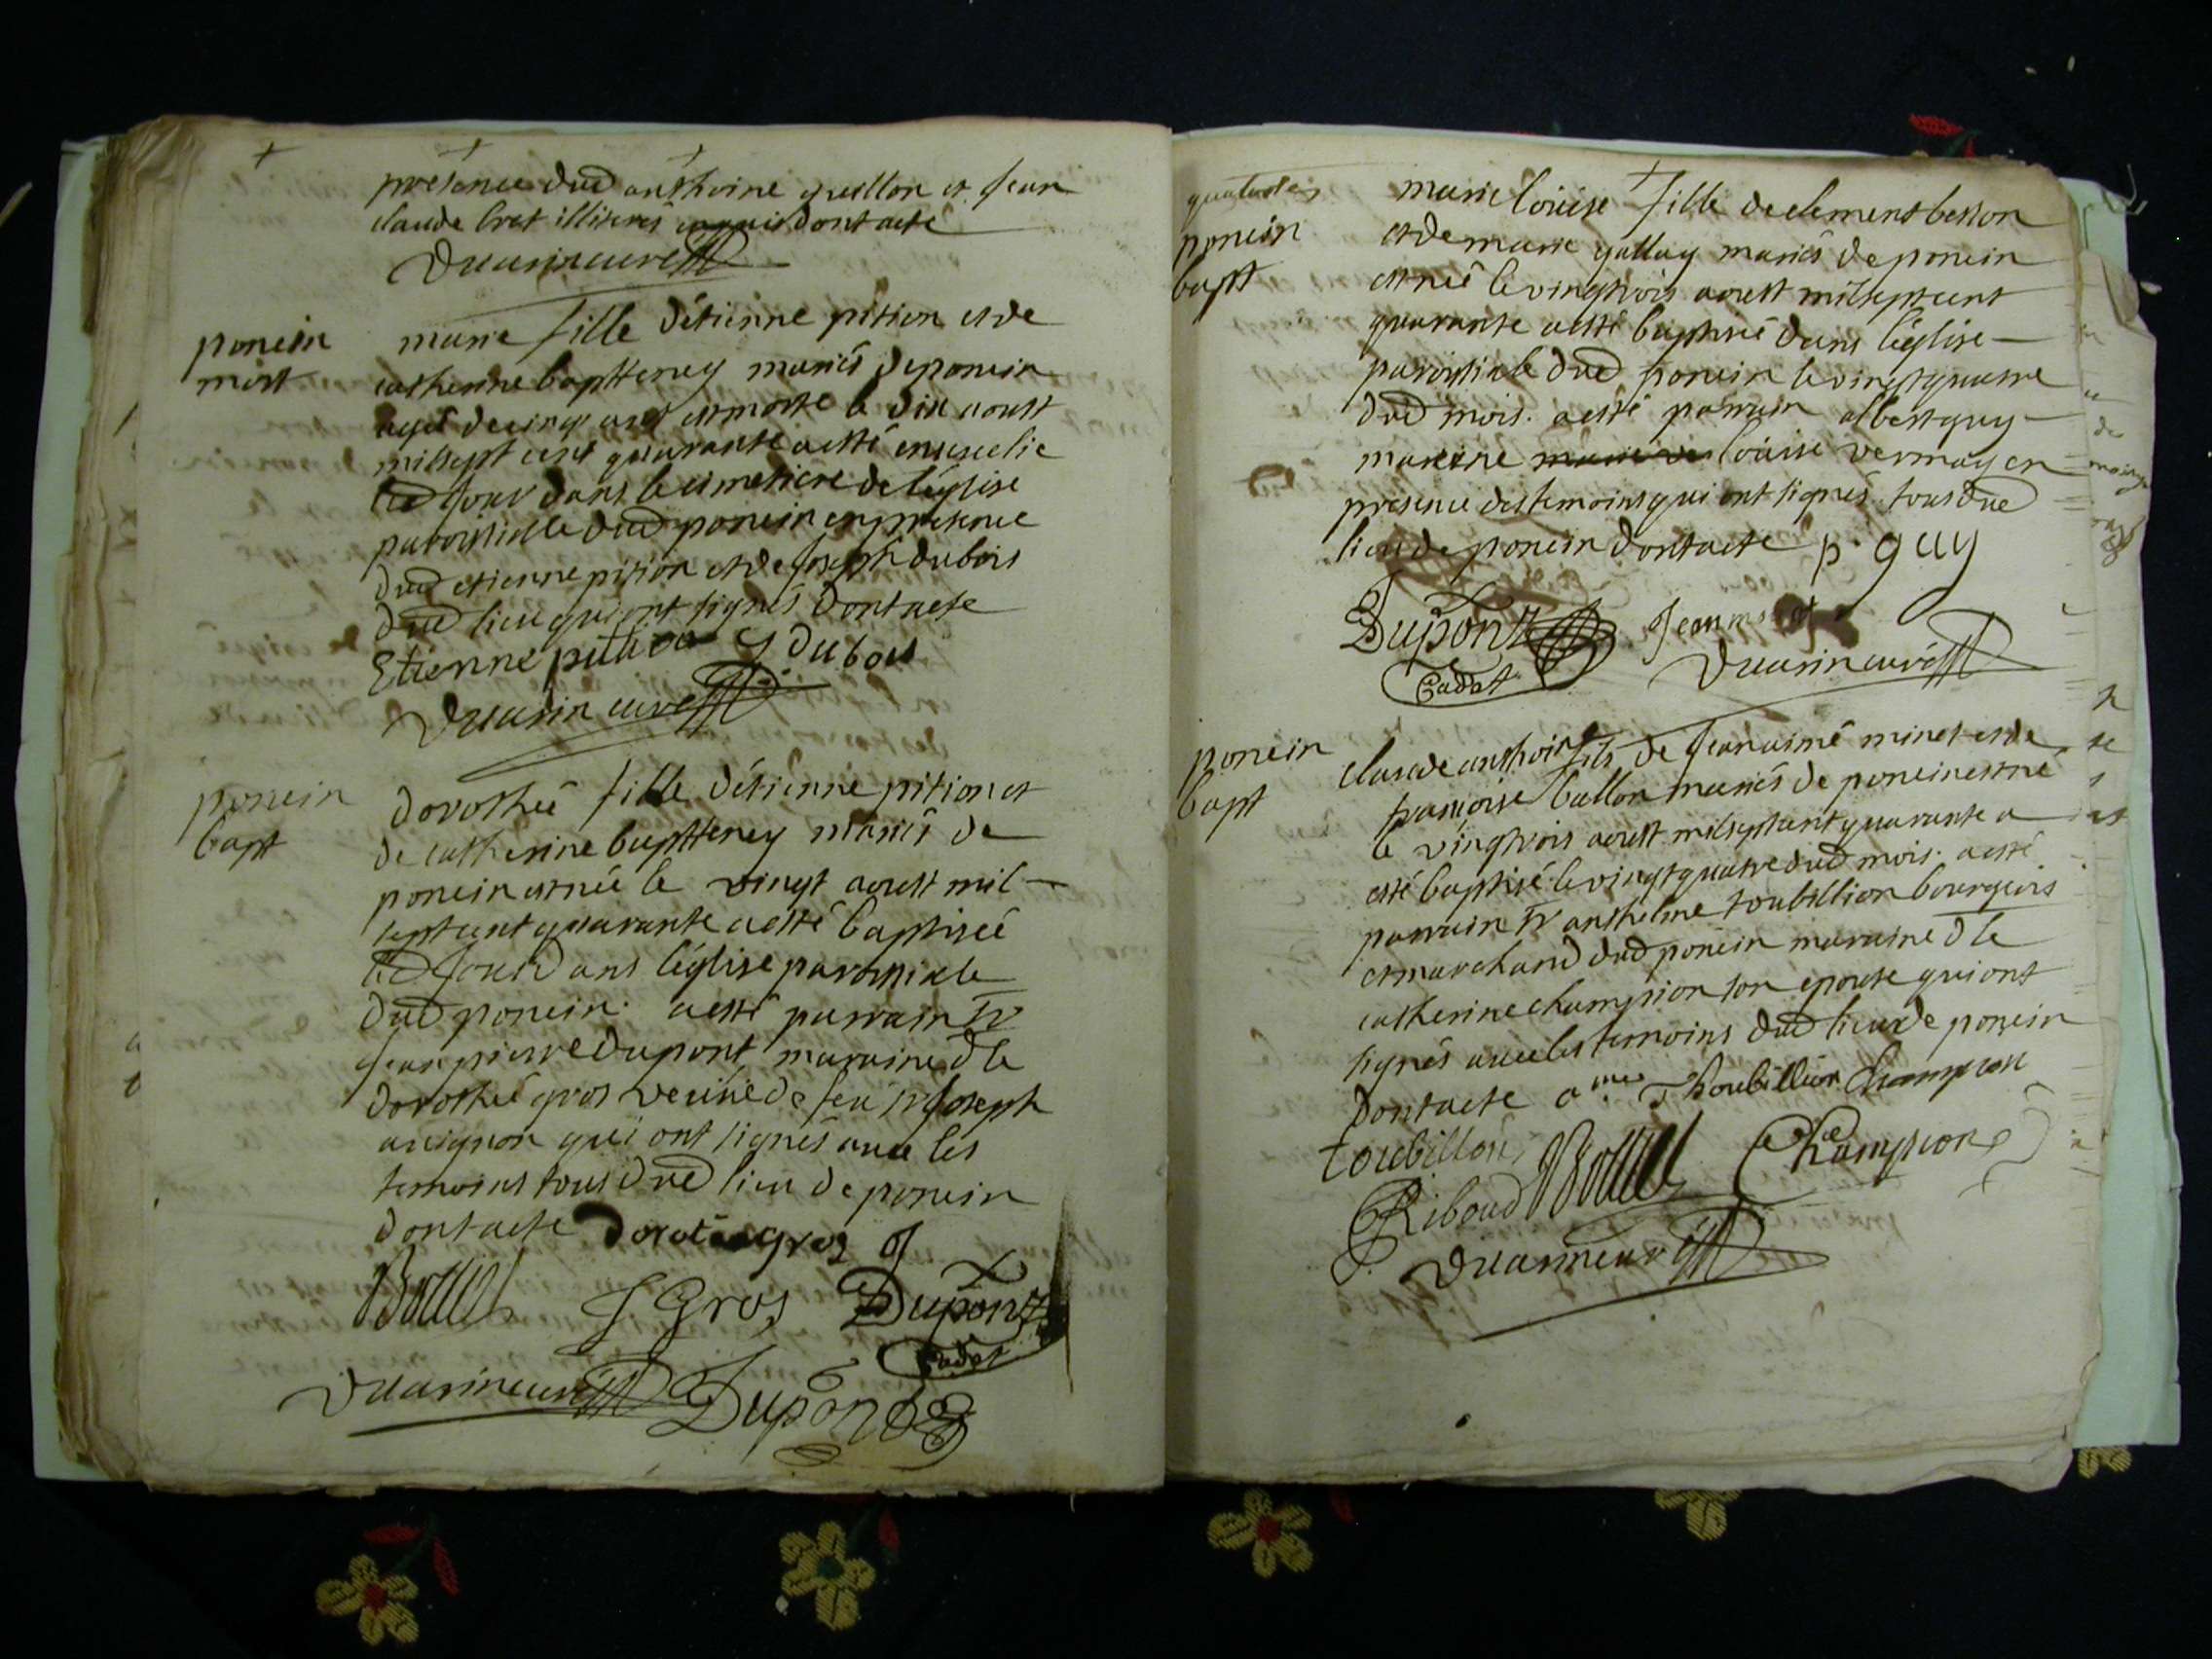 présence dud anthoine guillon et Jean
claude bret illiterés dont acte
Duarin curé
ponein
mort
marie fille d'étienne pition et de
catherine baptteney mariés de ponein
agée de cinq ans est morte le dix aoust
mil sept cent quarante a esté ensevelie
led jour dans le cimetiere de l'église
paroissialle dud ponein en presence
dud etienne pition et de Joseph dubois
dud lieu qui ont signés dont acte
Etienne pition J dubois
Duarin curé
ponein
bapt
dorothée fille d'étienne pition et
de catherine baptteney mariés de
ponein est née le vingt aoust mil
sept cent quarante a esté baptisée
led jour dans l'église paroissiale
dud ponein. a esté parrain sr
Jean pierre dupont maraine dlle
dorothée gros veuve de feu sr Joseph
avignon qui ont signés avec les
temoins tous dud lieu de ponein
dont acte dorotée gros
J Gros Dupont
Cadet
Duarin curé Dupond
ponein
bapt
marie loüise fille de clement besson
et de marie gallay mariés de ponein
est née le vingt trois aoust mil sept cent
quarante a esté baptisée dans l'église
paroissiale dud ponein le vingt quatre
dud mois. a esté parrain albert guy
maraine loüise vermay en
presence des temoins qui ont signés tous dud
lieu de ponein dont acte p. guy
Dupont Jean
Cadet Duarin curé
ponein
bapt
claude anthoine fils de Jean aimé minet et de
françoise ballon mariés de ponein est né
le vingt trois aoust mil sept cent quarante a
esté baptisé le vingt quatre dud mois. a esté
parrain sr anthelme toubillion bourgeois
et marchand dud ponein maraine dlle
catherine champion son epouse qui ont
signés avec les temoins dud lieu de ponein
dont acte Thoubillion Champion
toubillon Champion
Riboud
Duarin curé